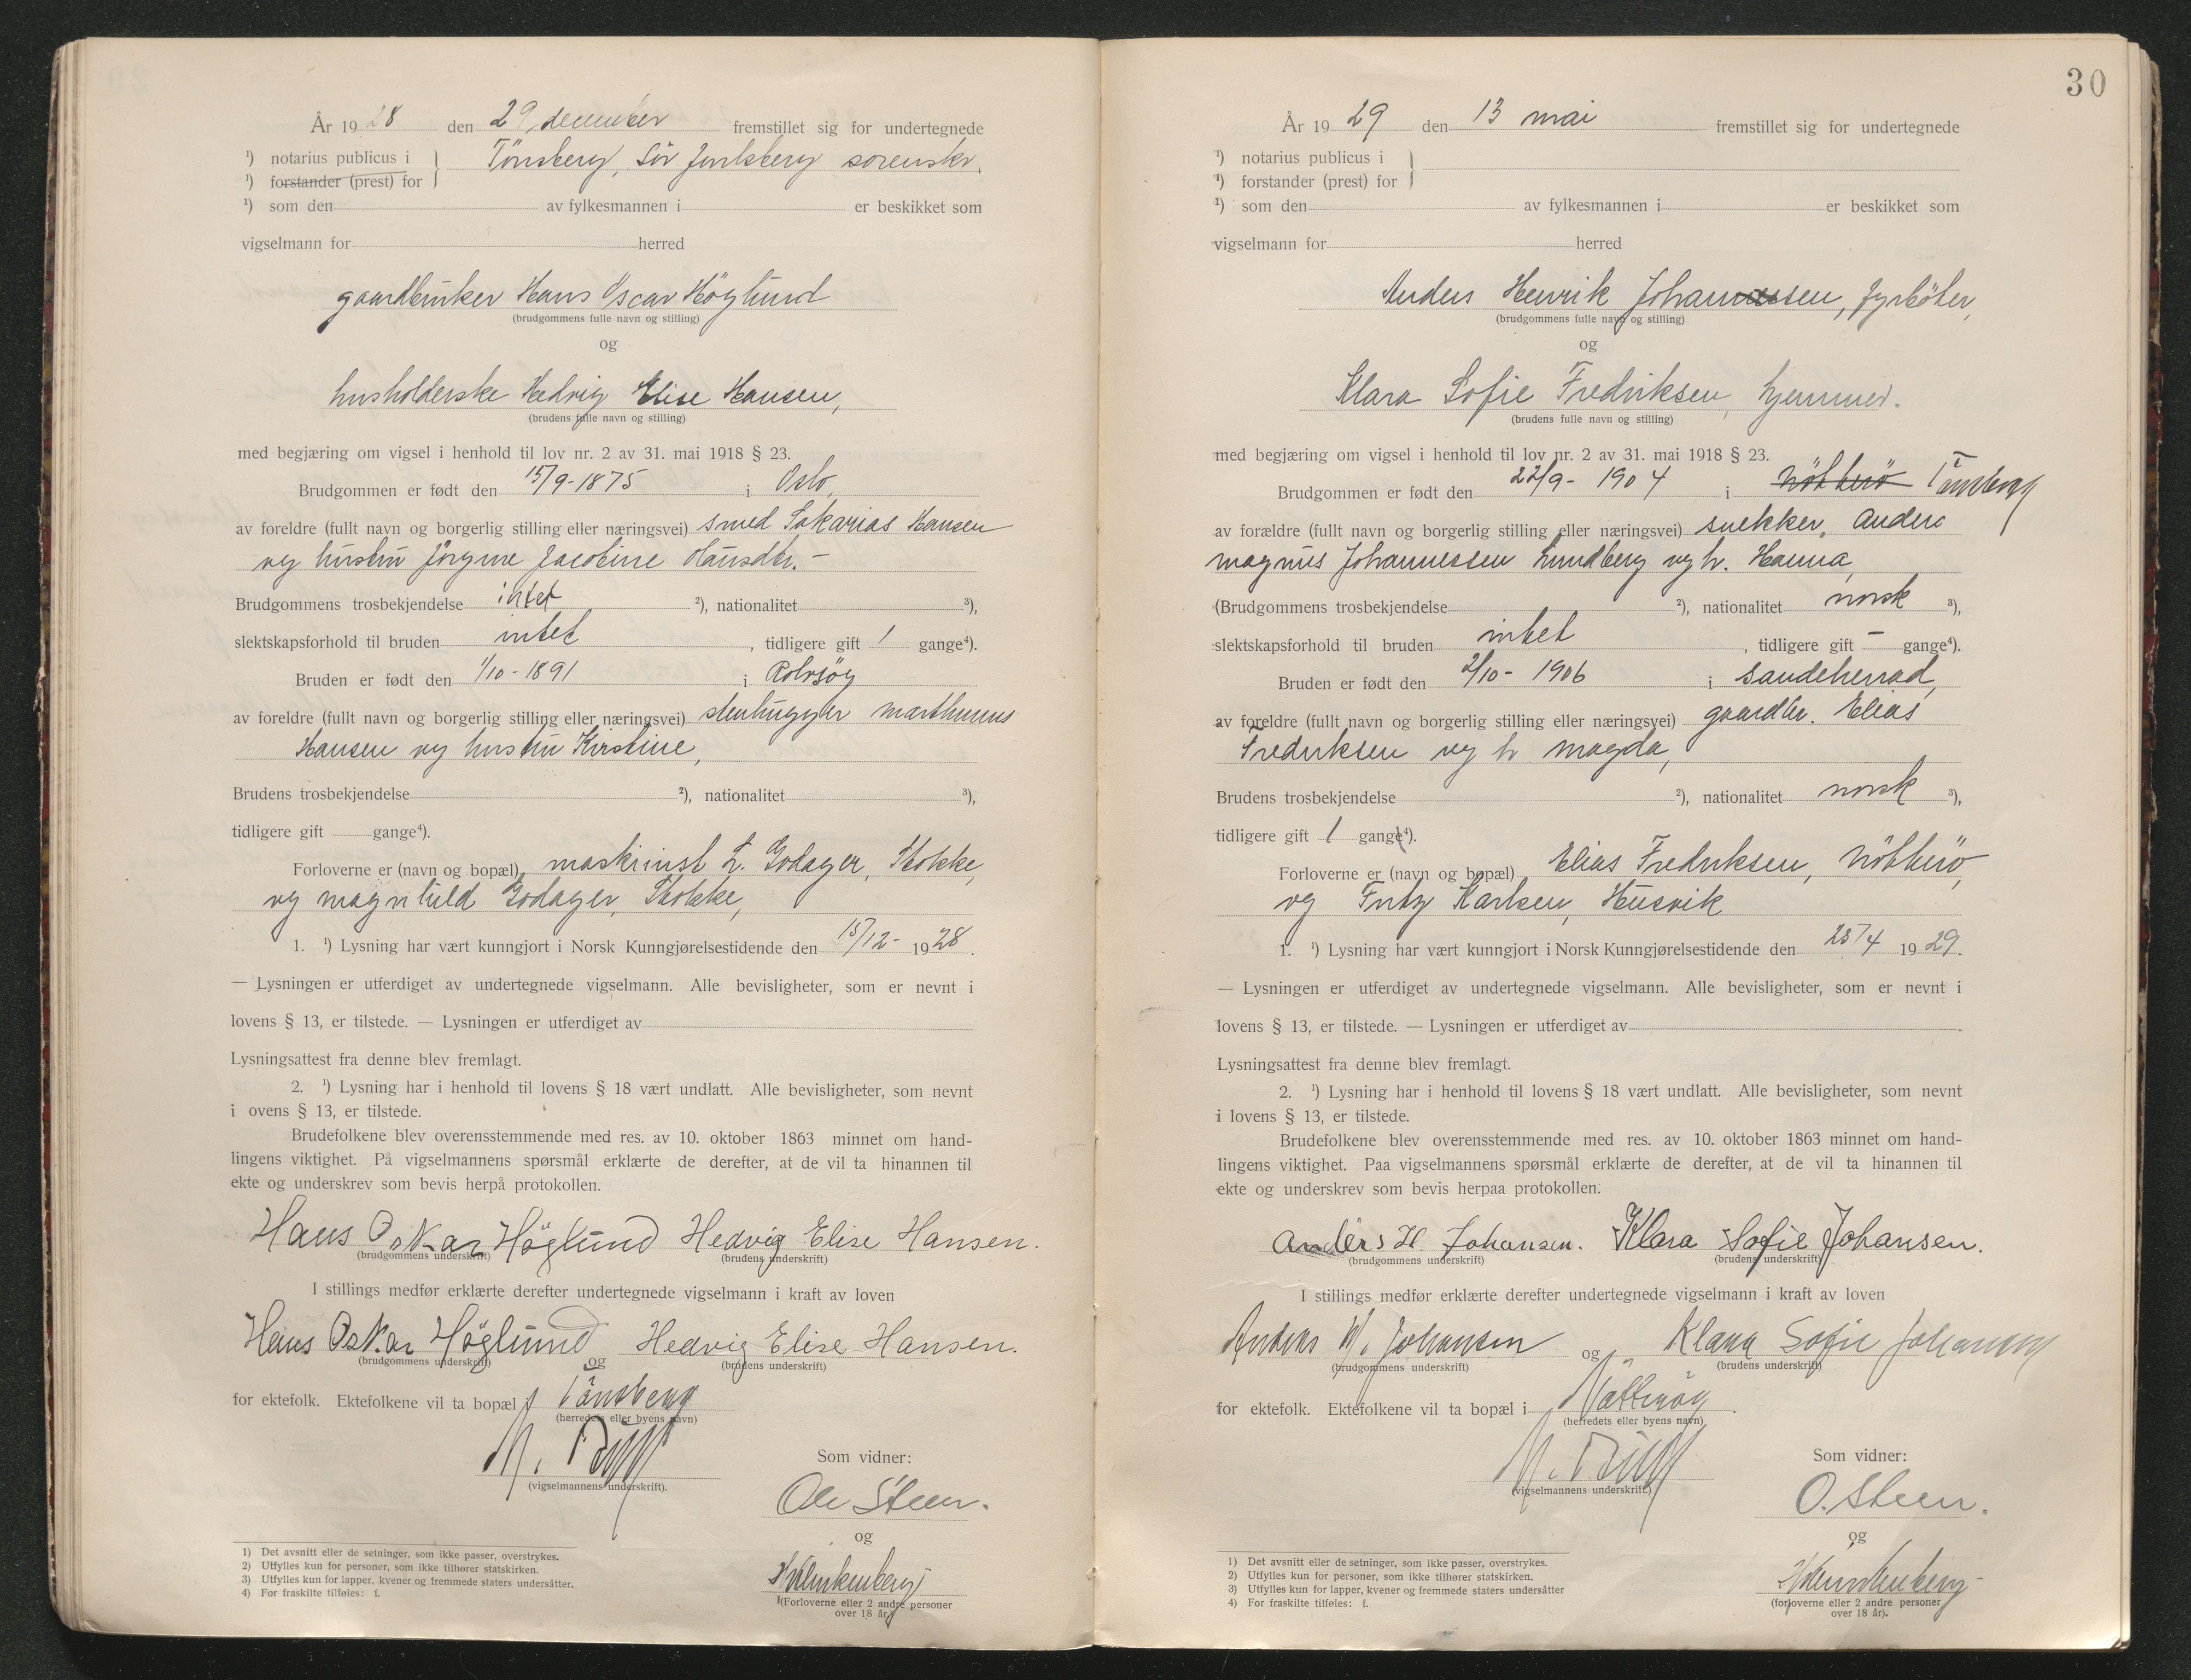 År 1928 den 29 december fremstillet sig for undertegnede
¹) notarius publicus i } Tönsberg, Sör Jarlsberg sorenskr.
¹) forstander (prest) for
¹) som den av fylkesmannen i er beskikket som
vigselmann for herred
gaardbruker Hans Oscar Höglund
(brudgommens fulle navn og stilling)
og
husholderske Hedvig Elise Hansen,
(brudens fulle navn og stilling)
med begjæring om vigsel i henhold til lov nr. 2 av 31. mai 1918 § 23.
Brudgommen er født den 15/9-1875 i Oslo,
av foreldre (fullt navn og borgerlig stilling eller næringsvei) smed Sakarias Hansen
og hustru Jörgine Jacobine Hansdtr. -
Brudgommens trosbekjendelse intet ²), nationalitet ³),
slektskapsforhold til bruden intet , tidligere gift 1 gange⁴).
Bruden er født den 1/10-1891 i Rolvsöy
av foreldre (fullt navn og borgerlig stilling eller næringsvei) stenhugger Marthinus
Hansen og hustru Kirstine,
Brudens trosbekjendelse ²), nationalitet ³),
tidligere gift gange⁴).
Forloverne er (navn og bopæl) maskinist L. Godager, Stokke,
og Magnhild Godager, Stokke,
1. ¹) Lysning har vært kunngjort i Norsk Kunngjørelsestidende den 15/12- 1928.
— Lysningen er utferdiget av undertegnede vigselmann. Alle bevisligheter, som er nevnt i
lovens § 13, er tilstede. — Lysningen er utferdiget av
Lysningsattest fra denne blev fremlagt.
2. ¹) Lysning har i henhold til lovens § 18 vært undlatt. Alle bevisligheter, som nevnt
i ovens § 13, er tilstede.
Brudefolkene blev overensstemmende med res. av 10. oktober 1863 minnet om hand-
lingens viktighet. På vigselmannens spørsmål erklærte de derefter, at de vil ta hinannen til
ekte og underskrev som bevis herpå protokollen.
Hans Oskar Höglund Hedvig Elise Hansen.
(brudgommens underskrift) (brudens underskrift)
I stillings medfør erklærte derefter undertegnede vigselmann i kraft av loven
Hans Oskar Höglund og Hedvig Elise Hansen.
(brudgommens underskrift) (brudens underskrift)
for ektefolk. Ektefolkene vil ta bopæl i Tönsberg
(herredets eller byens navn)
(vigselmannens underskrift).
Som vidner:
Ole Steen.
og
(Forloverne eller 2 andre personer
over 18 år.)
1) Det avsnitt eller de setninger, som ikke passer, overstrykes.
2) Utfylles kun for personer, som ikke tilhører statskirken.
3) Utfylles kun for lapper, kvener og fremmede staters undersåtter.
4) For fraskilte tilføies: f.
30
År 1929 den 13 mai fremstillet sig for undertegnede
¹) notarius publicus i }
¹) forstander (prest) for
¹) som den av fylkesmannen i er beskikket som
vigselmann for herred
Anders Henrik Johannessen, fyrböter,
(brudgommens fulle navn og stilling)
og
Klara Sofie Fredriksen, hjemmev.
(brudens fulle navn og stilling)
med begjæring om vigsel i henhold til lov nr. 2 av 31. mai 1918 § 23.
Brudgommen er født den 22/9- 1904 i Nötterö Tönsberg
av forældre (fullt navn og borgerlig stilling eller næringsvei) snekker, Anders
Magnus Johannessen Lundberg og h. Hanna,
(Brudgommens trosbekjendelse ²), nationalitet norsk ³),
slektskapsforhold til bruden intet , tidligere gift — gange⁴).
Bruden er født den 2/10- 1906 i Sandeherrad,
av foreldre (fullt navn og borgerlig stilling eller næringsvei) gaardbr. Elias
Fredriksen og h Magda,
Brudens trosbekjendelse ²), nationalitet norsk ³),
tidligere gift 1 gang⁴).
Forloverne er (navn og bopæl) Elias Fredriksen, Nötterö,
og Fritz Karlsen, Husvik
1. ¹) Lysning har vært kunngjort i Norsk Kunngjørelsestidende den 25/4 1929.
— Lysningen er utferdiget av undertegnede vigselmann. Alle bevisligheter, som er nevnt i
lovens § 13, er tilstede. — Lysningen er utferdiget av
Lysningsattest fra denne blev fremlagt.
2. ¹) Lysning har i henhold til lovens § 18 vært undlatt. Alle bevisligheter, som nevnt
i lovens § 13, er tilstede.
Brudefolkene blev overensstemmende med res. av 10. oktober 1863 minnet om hand-
lingens viktighet. Paa vigselmannens spørsmål erklærte de derefter, at de vil ta hinannen til
ekte og underskrev som bevis herpaa protokollen.
Anders H. Johansen. Klara Sofie Johansen.
(brudgommens underskrift) (brudens underskrift)
I stillings medfør erklærte derefter undertegnede vigselmann i kraft av loven
Anders H. Johansen og Klara Sofie Johansen
(brudgommens underskrift) (brudens underskrift)
for ektefolk. Ektefolkene vil ta bopæl i Nötteröy.
(herredets eller byens navn)
(vigselmannens underskrift.)
Som vidner:
O. Steen.
og
(forloverne eller 2 andre personer
over 18 år).
1) Det avsnitt eller de setninger, som ikke passer, overstrykes.
2) Utfylles kun for personer, som ikke tilhører statskirken.
3) Utfylles kun for lapper, kvener og fremmede staters undersåtter
4) For fraskilte tilføies: f.